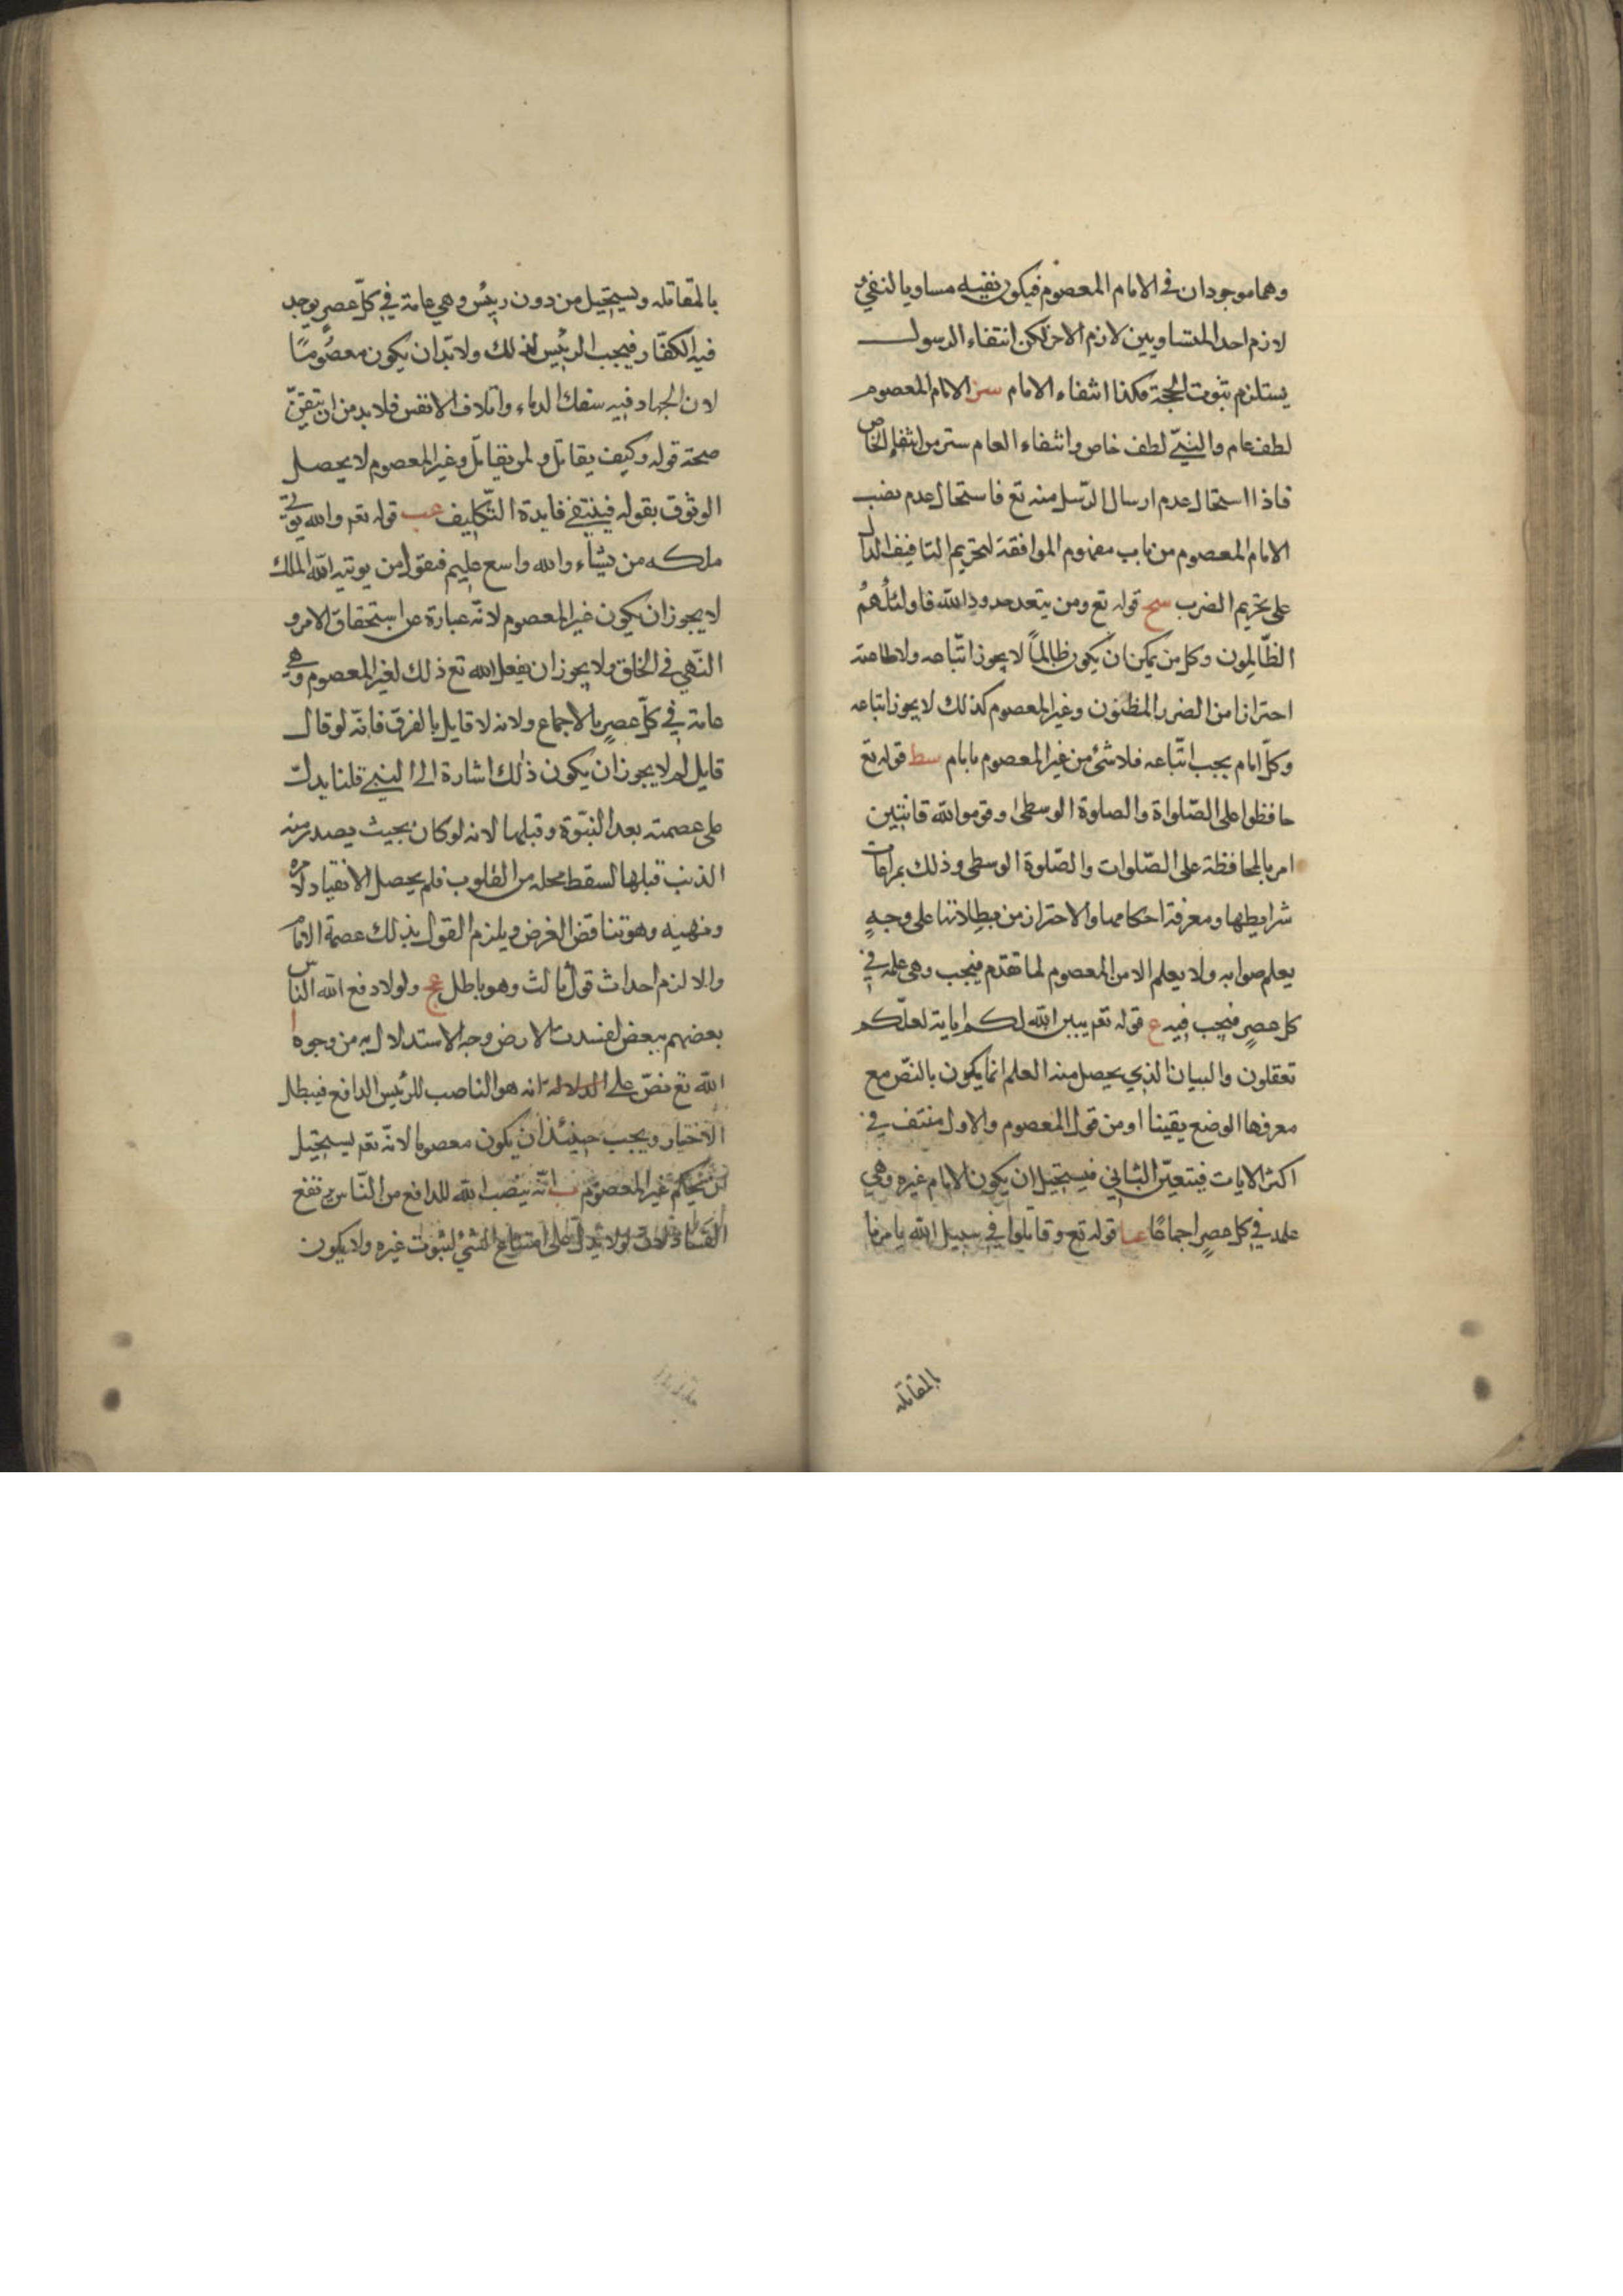 وهما موجودان في الامام المعصوم فيكون نفيه مساويا لنفي و
لازم احد المتساويين لازم الاخر لكن انتفاء الرسول
يستلزم ثبوت الحجة فكذا انتفاء الامام سز الامام المعصوم
لطف عام والنبي لطف خاص وانتفاء العام ستر من انتفاء الخاص
فاذا استحال عدم ارسال الرسل منه تع فاستحال عدم نصب
الامام المعصوم من باب مفهوم الموافقة لتحريم التافيف الدال
على تحريم الضرب سح قوله تع ومن يتعد حدود الله فاولئك هم
الظّالمون وكل من يمكن ان يكون ظالماً لا يجوز اتّباعه ولا طاعته
احترازا من الضرر المظنون وغير المعصوم كذلك لا يجوز اتباعه
وكلّ امام يجب اتّباعه فلا شئ من غير المعصوم بامام سط قوله تع
حافظوا على الصّلواة والصلوة الوسطى وقوموا لله قانتين
امر بالمحافظة على الصّلوات والصّلوة الوسطى وذلك بمراعات
شرايطها ومعرفة احكامها والاحتراز من مبطلاتها على وجهٍ
يعلم صوابه ولا يعلم الا من المعصوم لما تقدّم فيجب وهى عامة في
كل عصرٍ فيجب فيه ع قوله تعم يبين الله لكم اياته لعلّكم
تعقلون والبيان الذي يحصل منه العلم انما يكون بالنصّ مع
معرفها الوضع يقينا او من قول المعصوم والاول منتف في
اكثر الايات فيتعيّن الثاني فيستحيل ان يكون الامام غيره وهي
عامه في كل عصرٍ اجماعًا عا قوله تع وقاتلوا في سبيل الله يا مرنا
بالمقاتله
بالمقاتله ويستحيل من دون رئيس وهي عامة في كلّ عصرٍ يوجد
فيه الكفّار فيجب الرئيس لذلك ولا بدّ ان يكون معصومًا
لان الجهاد فيه سفك الدماء واتلاف الانفس فلا بد من ان تيقن
صحة قوله وكيف يقاتل ولمن يقاتل وغير المعصوم لا يحصل
الوثوق بقوله فينتفي فايدة التّكليف عب قوله تعم والله يؤتي
ملكه من يشاء والله واسع عليم فنقول من يوتيه الله الملك
لا يجوز ان يكون غير المعصوم لانّه عبارة عن استحقاق الامر و
النّهي في الخلق ولا يجوز ان يفعل الله تع ذلك لغير المعصوم وهي
عامة في كلّ عصرٍ بالاجماع ولانه لا قايل بالفرق فانّه لو قال
قايل لم لا يجوز ان يكون ذلك اشارة الى النبي قلنا يدلّ
على عصمته بعد النبّوة وقبلها لانه لو كان بحيث يصدر منه
الذنب قبلها لسقط محله من القلوب فلم يحصل الانقياد لامره
ونهيه وهو تناقض الغرض ويلزم القول بذلك عصمة الامام
والا لزم احداث قول ثالث وهو باطل عج ولولا دفع الله الناس
بعضهم ببعض لفسدت الارض وجه الاستدلال به من وجوه ا
الله تع نصّ على الدلالة انه هو الناصب للرئيس الدافع فيبطل
الاختيار ويجب حينئذ ان يكون معصوما لانّه تعم يستحيل
غير المعصوم ب انّه بنصب الله للدافع من النّاس يرتفع
الفساد لان لولا يدل على امتناع الشئ لثبوت غيره ولا يكون